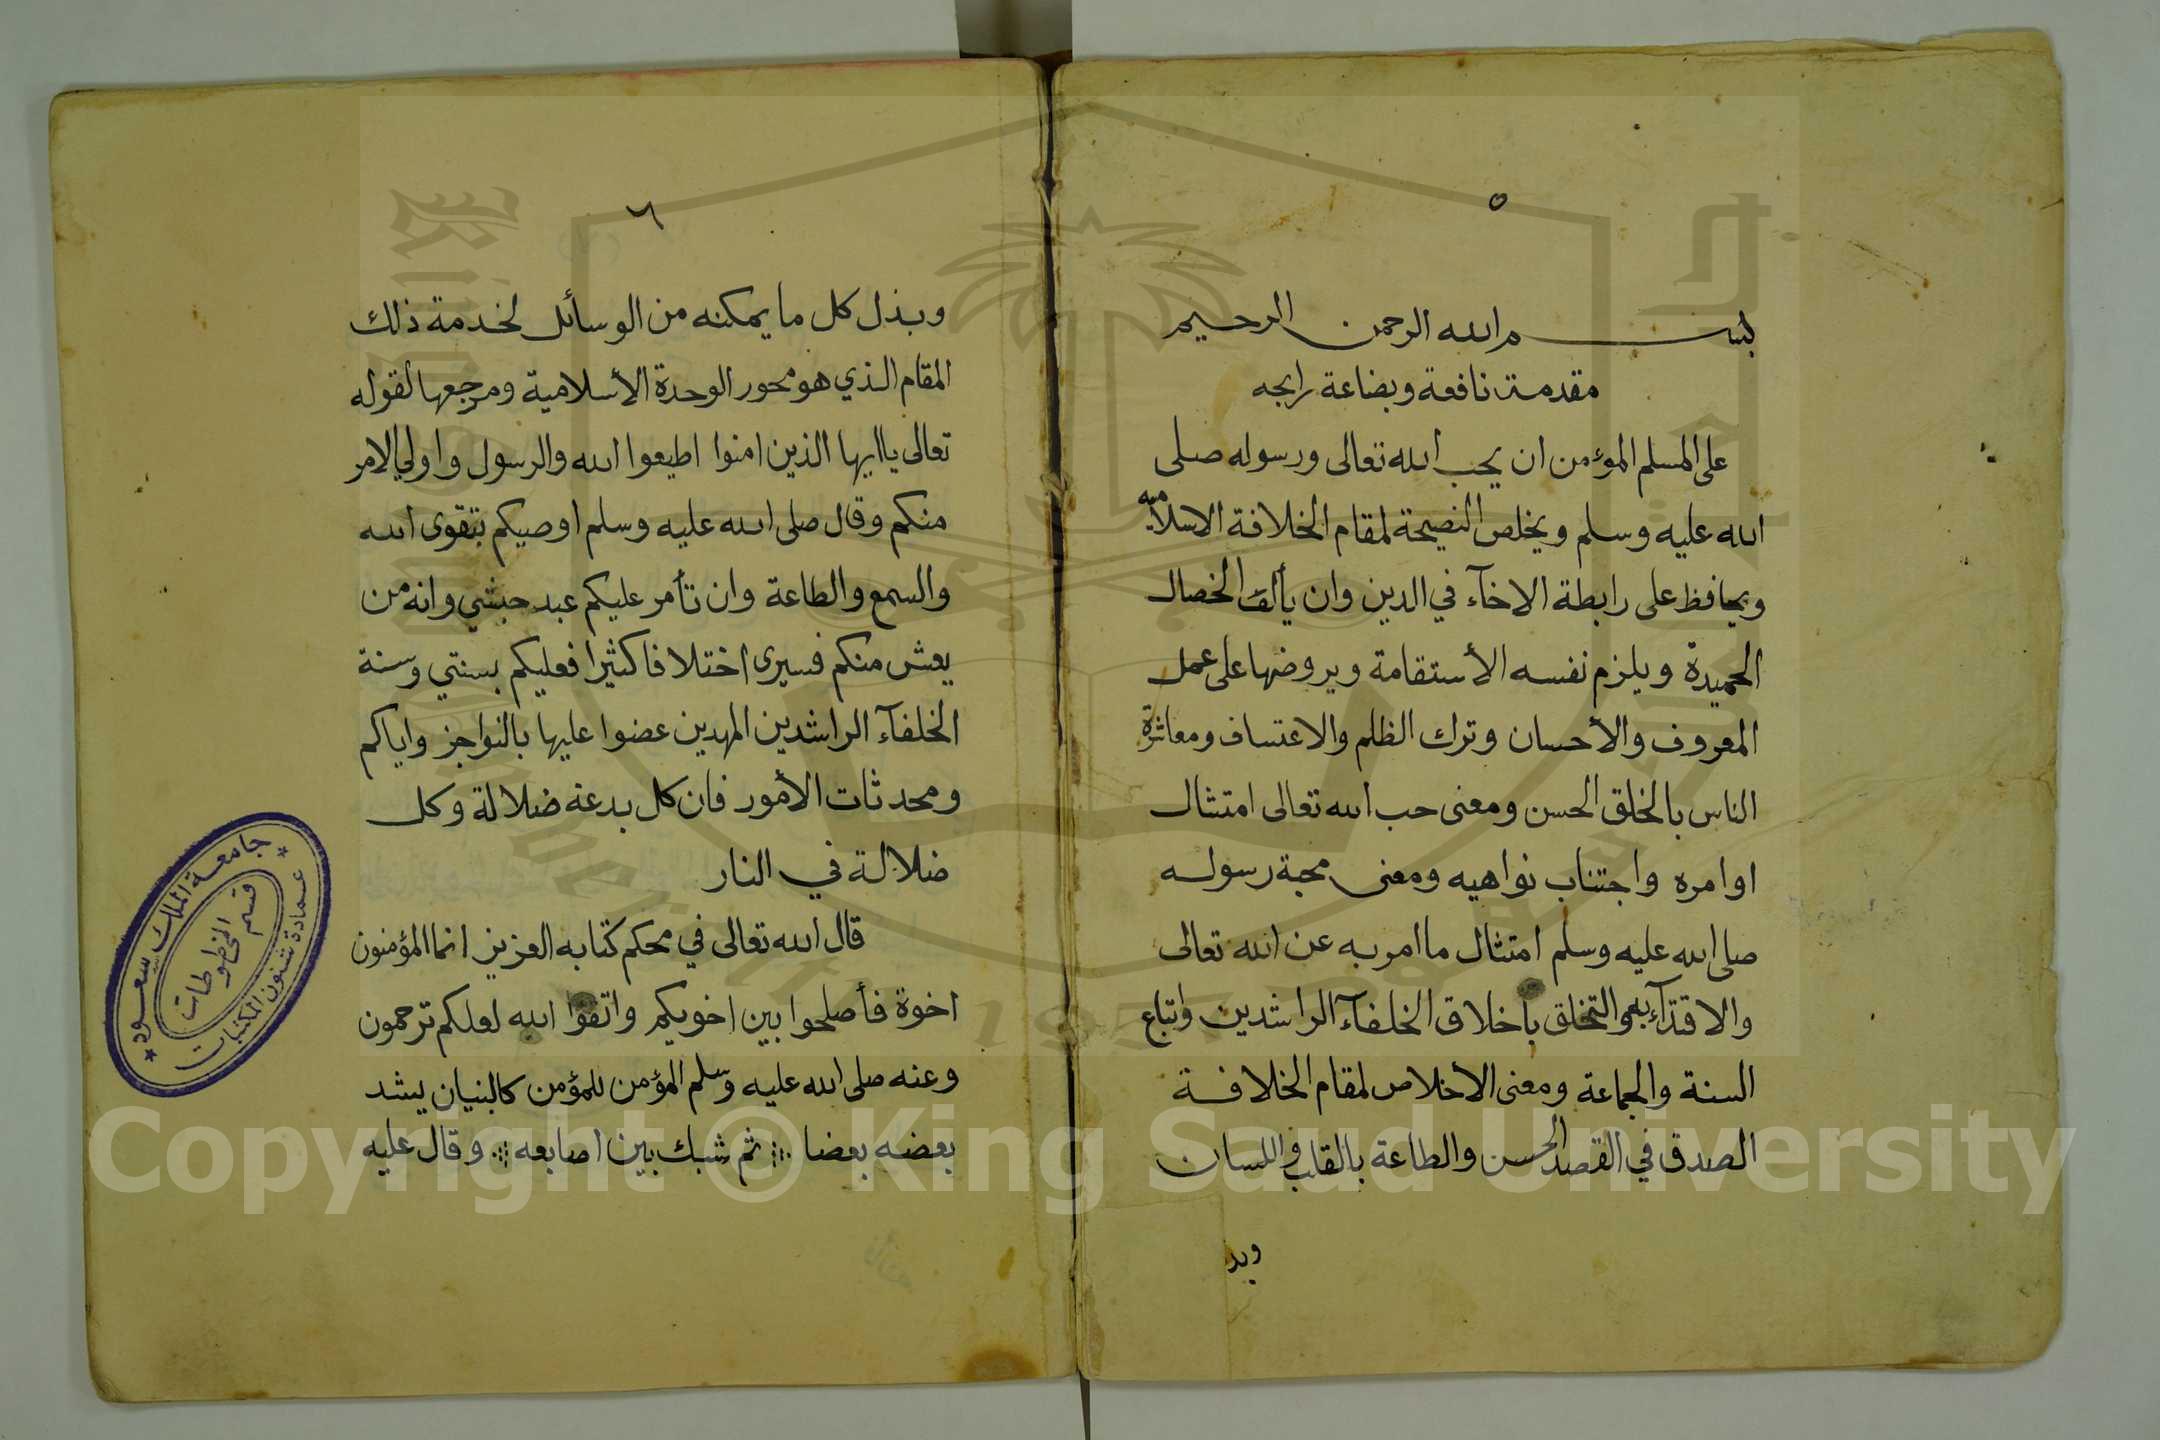 ٥
بسم الله الرحمن الرحيم
مقدمة نافعة وبضاعة رابحه
على المسلم المؤمن ان يحب الله تعالى ورسوله صلى
الله عليه وسلم ويخلص النصيحة لمقام الخلافة الاسلاميه
ويحافظ على رابطة الاخآء في الدين وان يألف الخصال
الحميدة ويلزم نفسه الأستقامة ويروضها على عمل
المعروف والأحسان وترك الظلم والاعتساف ومعاشرة
الناس بالخلق الحسن ومعنى حب الله تعالى امتثال
اوامره واجتناب نواهيه ومعنى محبة رسوله
صلى الله عليه وسلم امتثال ما امر به عن الله تعالى
والاقتدآء به والتخلق بأخلاق الخلفآء الراشدين واتباع
السنة والجماعة ومعنى الأخلاص لمقام الخلافة
الصدق في القصد الحسن والطاعة بالقلب واللسان
وبذ
٦
وبذل كل ما يمكنه من الوسائل لخدمة ذلك
المقام الذي هو محور الوحدة الأسلامية ومرجعها لقوله
تعالى ياايها الذين امنوا اطيعوا الله والرسول واولي الامر
منكم وقال صلى الله عليه وسلم اوصيكم بتقوى الله
والسمع والطاعة وان تأمر عليكم عبد حبشي وانه من
يعش منكم فسيرى اختلافا كثيرا فعليكم بسنتي وسنة
الخلفآء الراشدين المهدين عضوا عليها بالنواجز واياكم
ومحدثات الأمور فان كل بدعة ضلالة وكل
ضلالة في النار
قال الله تعالى في محكم كتابه العزيز انما المؤمنون
اخوة فأصلحوا بين اخويكم واتقوا الله لعلكم ترحمون
وعنه صلى الله عليه وسلم المؤمن للمؤمن كالبنيان يشد
بعضه بعضا ثم شبك بين اصابعه وقال عليه
جامعة الملك سعود
عمادة شئون المكتبات
قسم المخطوطات
King Saud University
1957
Copyright © King Saud University